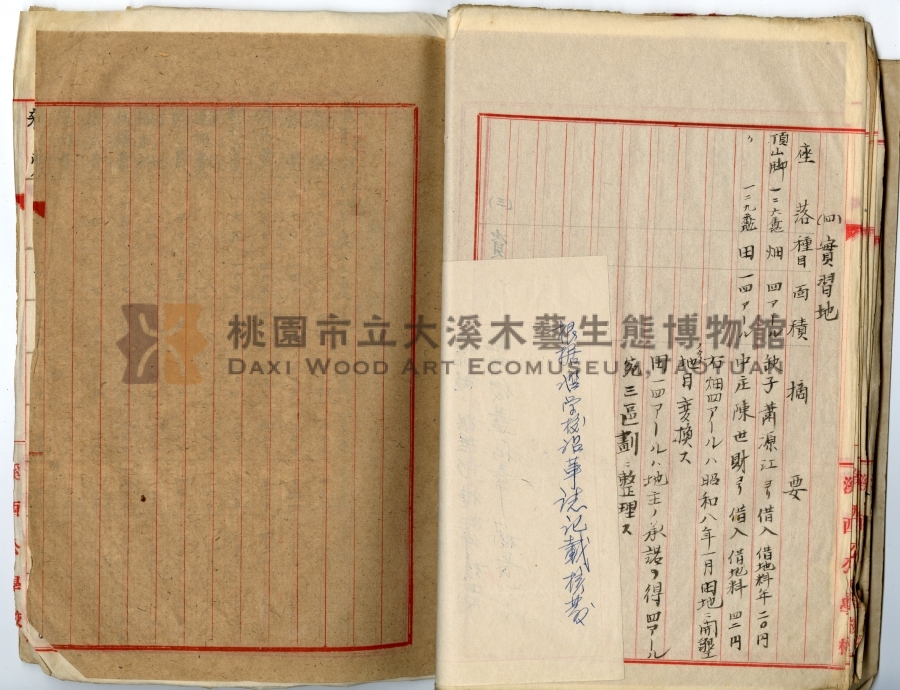 (四)實習地
座落 種目 面積 摘要
頂山脚 一二六番地 畑 四アール 缺子蕭源江ヨリ借入 借地料年二〇円
〃 一二九番地 田 一四アール 中庄陳世財ヨリ借入 借地料 四二円
右畑四アールハ昭和八年一月田地ニ開墾
地目変換ス
田一四アールハ地主ノ承諾ヲ得四アール
宛三區劃ニ整理ス
根据 学校沿革誌記載
桃園市立大溪木藝生態博物館
DAXI WOOD ART ECOMUSEUM, TAOYUAN